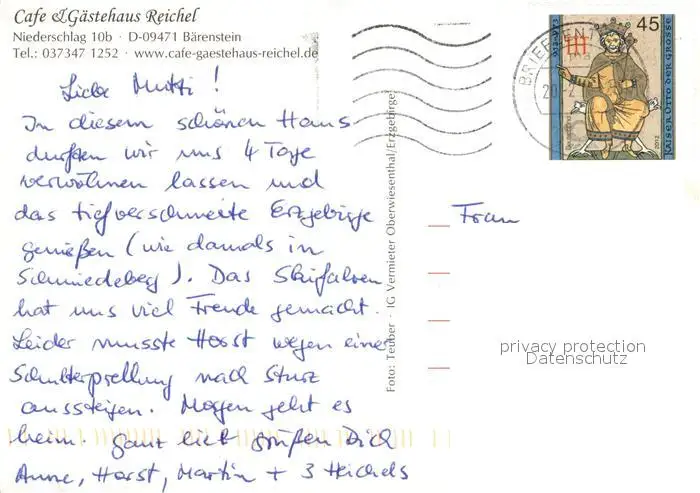 Cafe & Gästehaus Reichel
Niederschlag 10b · D-09471 Bärenstein
Tel.: 037347 1252 · www.cafe-gaestehaus-reichel.de
Liebe Mutti!
In diesem schönen Haus
durften wir uns 4 Tage
verwöhnen lassen und
das tiefverschneite Erzgebirge
genießen (wie damals in
Schmiedeberg). Das Skifahren
hat uns viel Freude gemacht.
Leider musste Horst wegen einer
Schulterprellung nach Sturz
aussteigen. Morgen geht es
heim. Ganz lieb grüßen Dich
Anne, Horst, Martin + 3 Heichels
Foto: Teuber · IG Vermieter Oberwiesenthal/Erzgebirge
BRIEFZEN
20
2
912-973
45
KAISER OTTO DER GROSSE
Deutschland
2012
Frau
privacy protection
Datenschutz